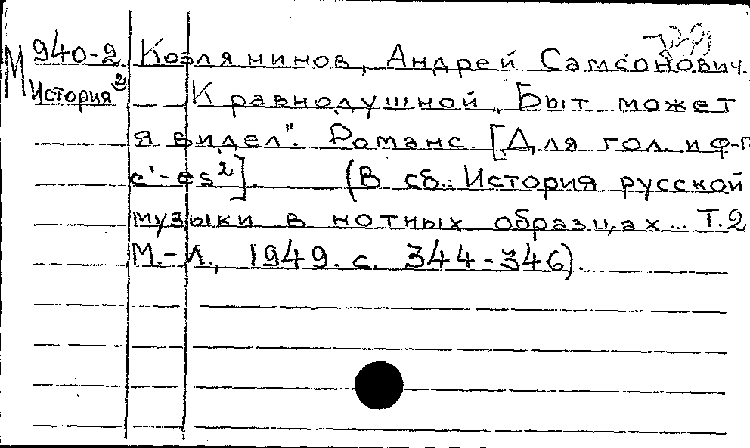 М 940-2 Козлянинов, Андрей Самсонович.
История² К равнодушной „Быт может
я видел". Романс [Для гол. и ф-п
c'-es²]. (В сб.: История русской
музыки в нотных образцах... Т.2
М.-Л., 1949. с. 344-346).